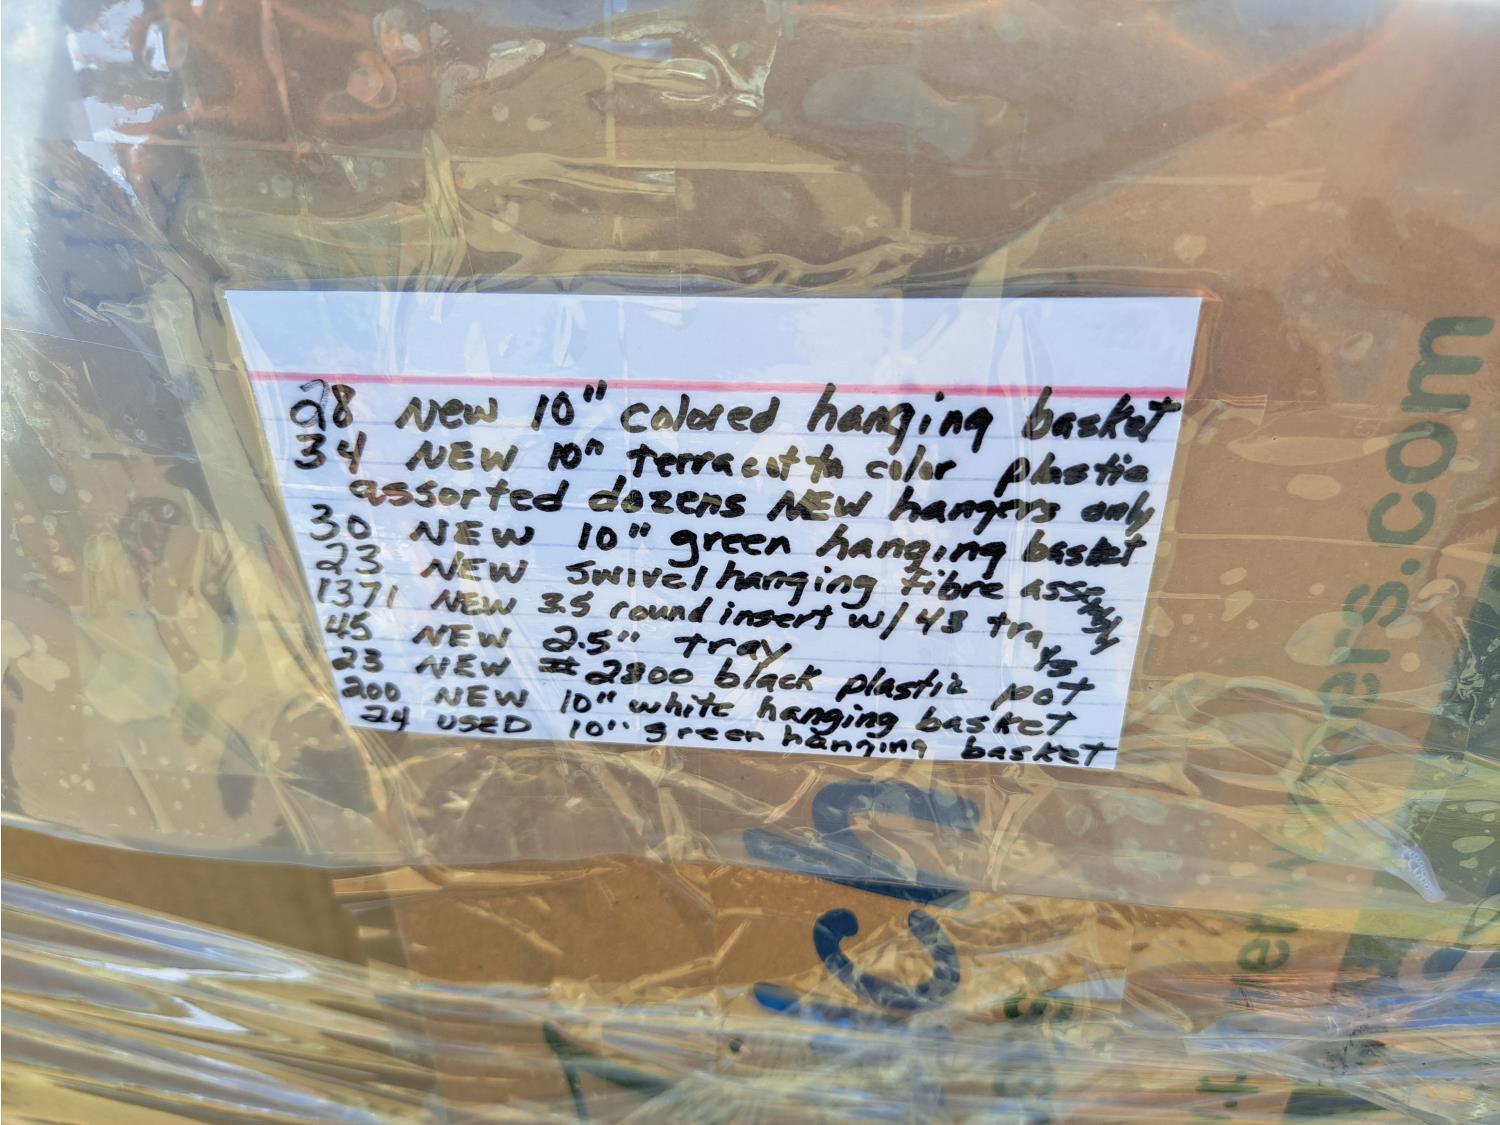 28 New 10" colored hanging basket
34 NEW 10" terracotta color plastic
assorted dozens NEW hangers only
30 NEW 10" green hanging basket
23 NEW swivel hanging fibre assembly
1371 NEW 3.5 round insert w/ 43 trays
45 NEW 2.5" tray
23 NEW #2800 black plastic pot
200 NEW 10" white hanging basket
24 USED 10" green hanging basket
ers.com